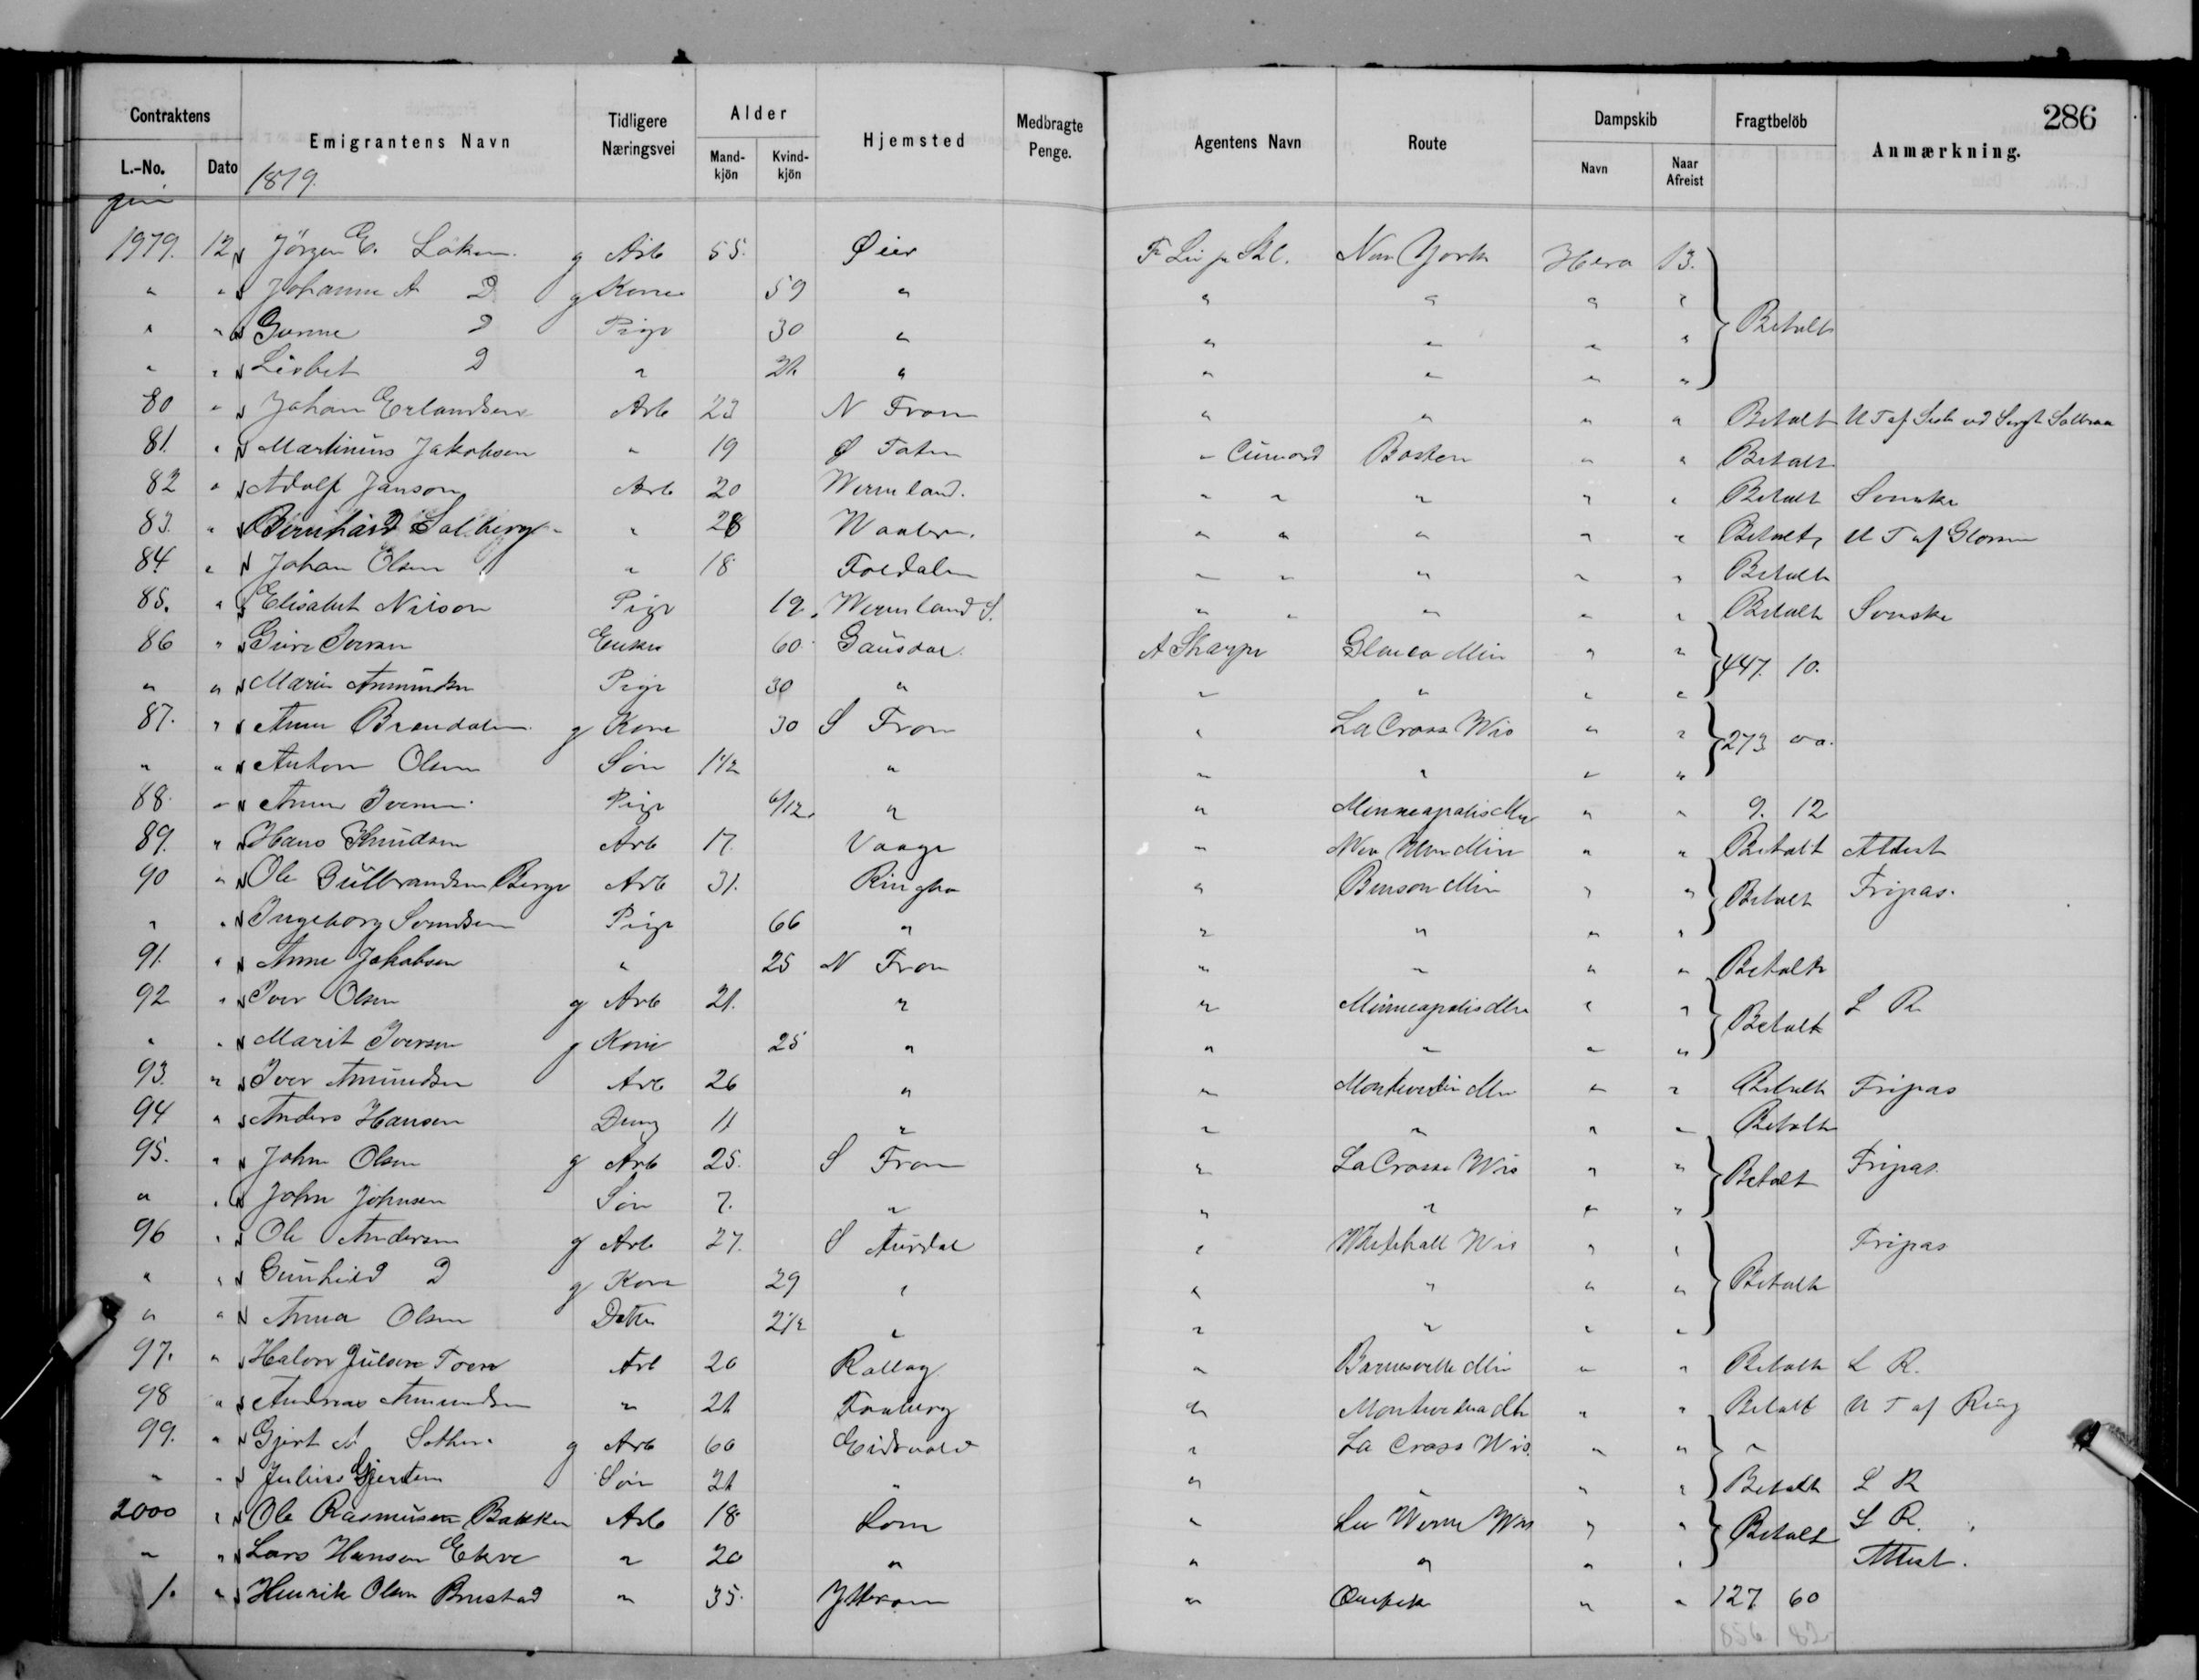 286
Contraktens Emigrantens Navn Tidligere Næringsvei Alder Hjemsted Medbragte Penge. Agentens Navn Route Dampskib Fragtbelöb Anmærkning.
L.-No. Dato Mand-kjön Kvind-kjön Navn Naar Afreist
1879.
1979. 12 Jörgen E. g Arb 55. Øier New York Hero 13.
" " Johanne A D g Kone 59 " " " " "
" " D Pige 30 " " " " " Betalt
" " Lisbet D " 21 " " " " "
80 " Johan Erlandsen Arb 23 N Fron " " " " Betalt U T af
81. " Martinius Jakobsen " 19 Ø Toten " Cunard Boston " " Betalt
82 " Adolf Janson Arb 20 Wermland. " " " " " Betalt Svenske
83. " Bernhard Solberg " 28 Waaler. " " " " " Betalt U T af
84. " Johan Olsen " 18 Foldalen " " " " " Betalt
85. " Elisabet Nilson Pige 19. Wermland S. " " " " " Betalt Svenske
86 " Iversen Enke 60 Gausdal. A Sharpe Min " " 447. 10.
" " Marie Amundsen Pige 30 " " " " "
87. " Anne Brendalen g Kone 30 S Fron " La Cross Wis " " 273 00.
" " Anton Olsen Sön 1 1/2 " " " " "
88. " Anne Iversen Pige 6/12. " " Minneapolis Min " " 9. 12
89. " Hans Knudsen Arb 17. Vaage " New Ulm Min " " Betalt Attest
90 " Ole Gulbrandsen Berge Arb 31. " Benson Min " " Betalt Fripas.
" " Ingeborg Svendsen Pige 66 " " " " "
91. " Anne Jakobsen " 25 N Fron " " " " Betalt
92 " Iver Olsen g Arb 21. " " Minneapolis Min " " Betalt L R
" " Marit Iversen g Kone 25 " " " " "
93. " Iver Amundsen Arb 26 " " Min " " Betalt Fripas
94 " Anders Hansen Dreng 11 " " " " " Betalt
95. " John Olsen g Arb 25. S Fron " La Crosse Wis " " Betalt Fripas.
" " John Johnsen Sön 7. " " " " "
96 " Ole Andersen g Arb 27. S Aurdal " Whitehall Wis " " Fripas
" " Gunhild D g Kone 29 " " " " " Betalt
" " Anna Olsen Datter 2 1/2 " " " " "
97. " Halvor Toen Arb 20 Rollag " Barnesville Min " " Betalt L R.
98 " Andreas Amundsen " 21 Faaberg " " " Betalt U T af Ring
99. " A g Arb 60 Eidsvold " La Cross Wis. " " "
" " Julius Gjertsen Sön 21 " " " " " Betalt L R
2000 " Ole Rasmussen Bakken Arb 18 Lom " Wis " " Betalt L R.
" " Lars Hansen Ekre " 20 " " " " " Attest.
1. " Henrik Olsen Brustad " 35. " " " 127 60
856 82